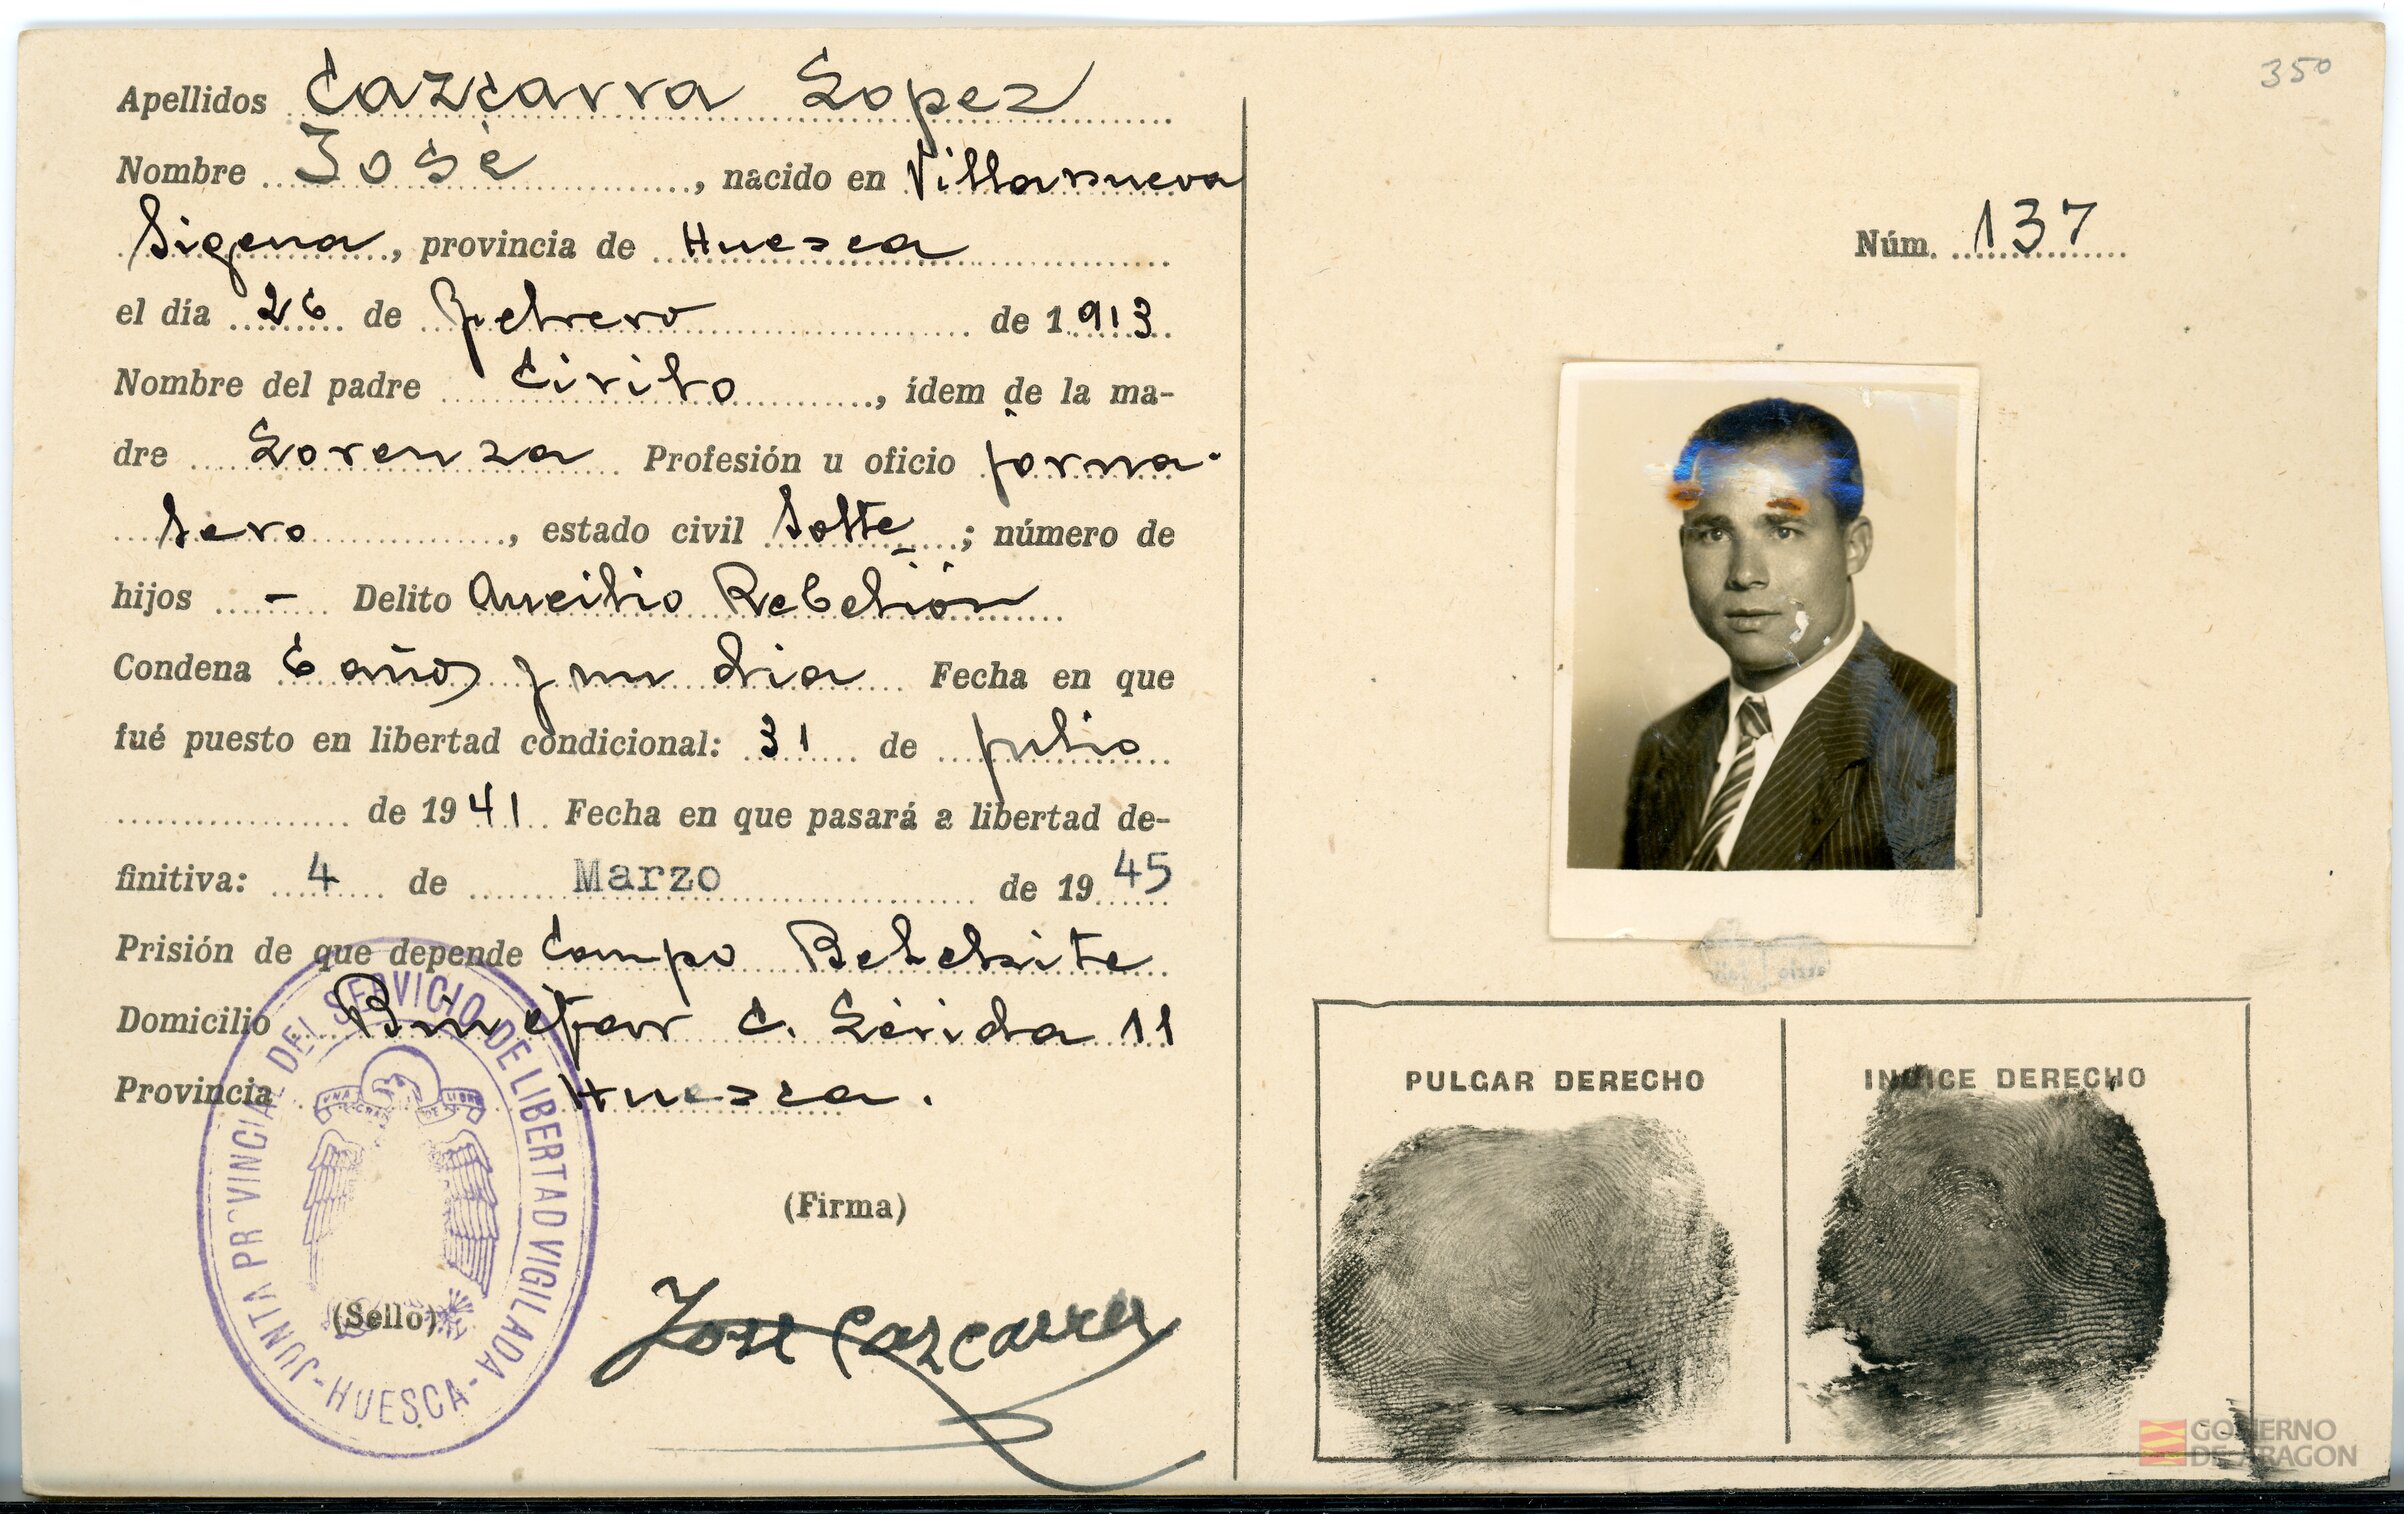 Apellidos Cazcarra Lopez
Nombre José, nacido en Villanueva
Sigena, provincia de Huesca
el día 26 de febrero de 1913
Nombre del padre Cirilo, ídem de la ma-
dre Lorenza Profesión u oficio jorna-
lero, estado civil Solte; número de
hijos - Delito Auxilio Rebelión
Condena 6 años y un dia Fecha en que
fué puesto en libertad condicional: 31 de julio
de 1941 Fecha en que pasará a libertad de-
finitiva: 4 de Marzo de 1945
Prisión de que depende Campo Belchite
Domicilio Binefar C. Lérida 11
Provincia Huesca.
(Firma)
(Sello)
José Cazcarra
JUNTA PROVINCIAL DEL SERVICIO DE LIBERTAD VIGILADA
-HUESCA-
UNA GRANDE LIBRE
350
Núm. 137
PULGAR DERECHO
INDICE DERECHO
GOBIERNO
DE ARAGON